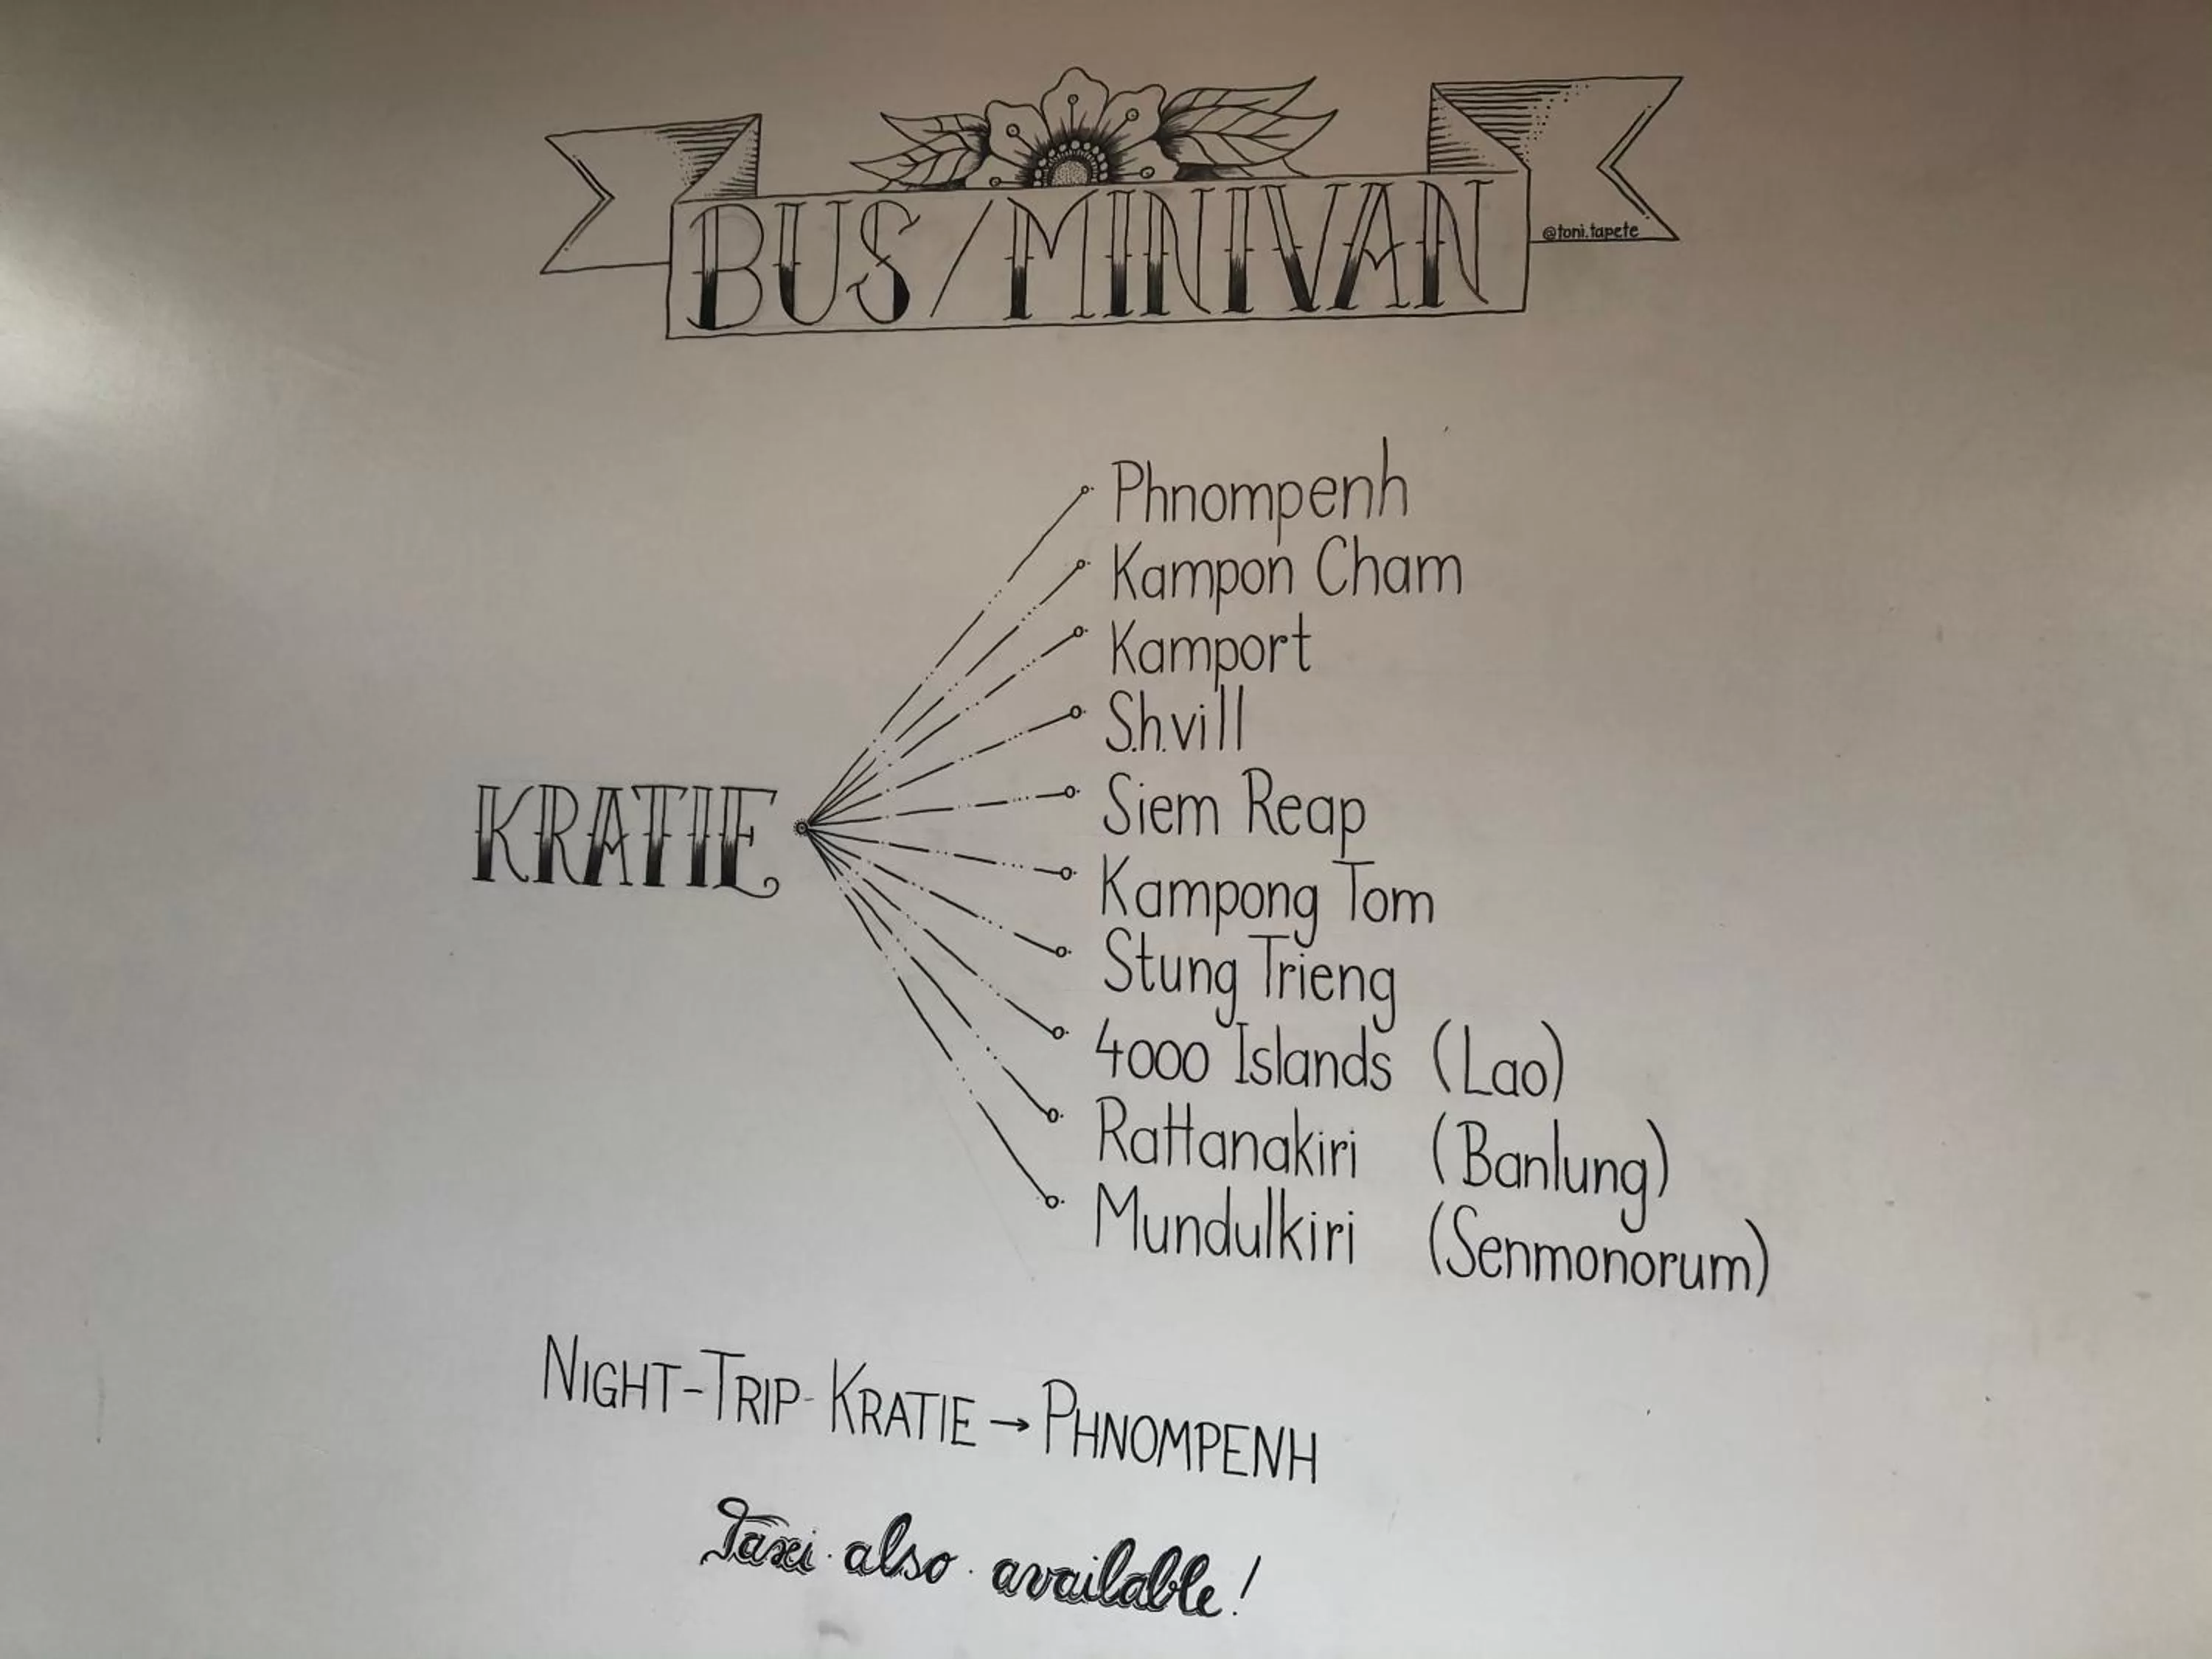 BUS/MINIVAN
@toni.tapete
Phnompenh
Kampon Cham
Kamport
S.h.vill
Siem Reap
KRATIE
Kampong Tom
Stung Trieng
4000 Islands (Lao)
Rattanakiri (Banlung)
Mundulkiri (Senmonorum)
NIGHT-TRIP-KRATIE → PHNOMPENH
Taxi also available!